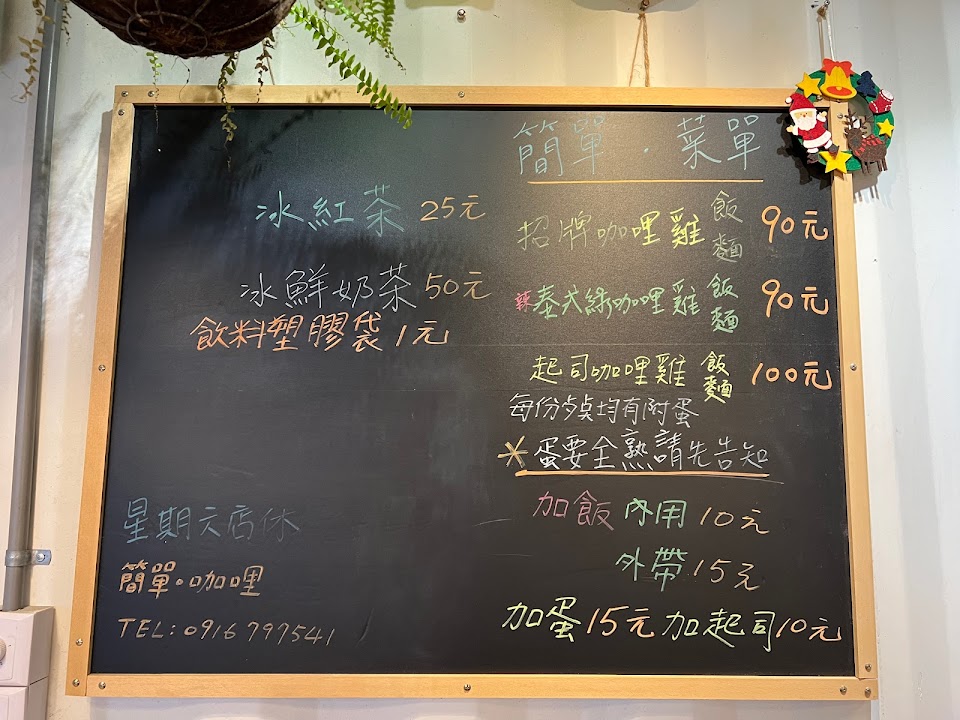 簡單．菜單
招牌咖哩雞 飯 麵 90元
辣泰式綠咖哩雞 飯 麵 90元
起司咖哩雞 飯 麵 100元
每份餐均有附蛋
＊蛋要全熟請先告知
加飯 內用 10元
外帶 15元
加蛋15元 加起司10元
冰紅茶 25元
冰鮮奶茶 50元
飲料塑膠袋 1元
星期六店休
簡單。咖哩
TEL:0916797541